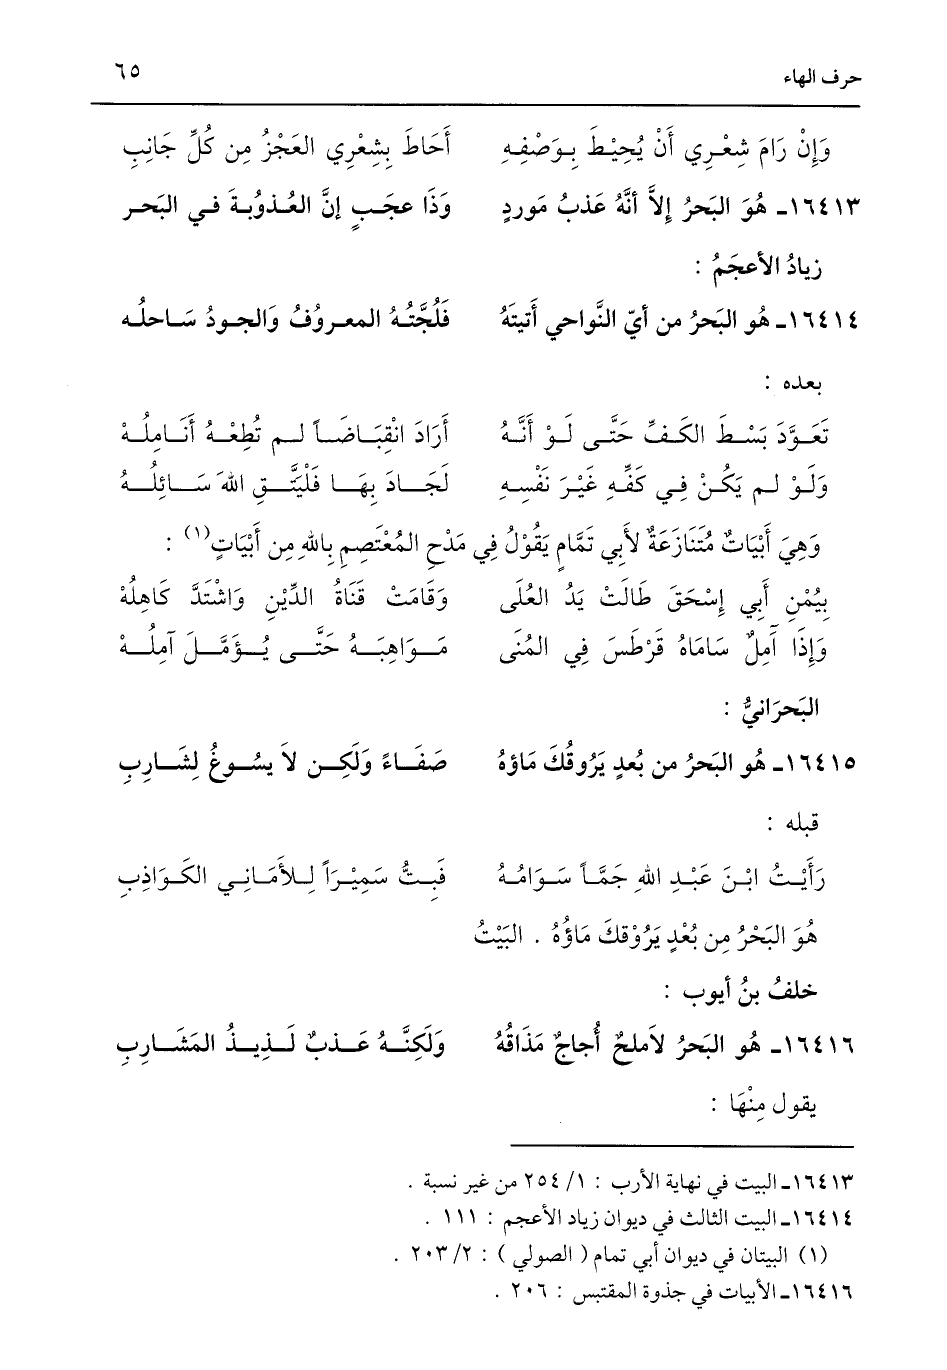 حرف الهاء ٦٥
وَإِنْ رَامَ شِعْرِي أَنْ يُحِيْطَ بِوَصْفِهِ أَحَاطَ بِشِعْرِي العَجْزُ مِن كُلِّ جَانِبِ
١٦٤١٣ـ هُوَ البَحرُ إِلاَّ أنَّهُ عَذبُ مَوردٍ وَذَا عجَبٍ إنَّ العُذوُبةَ في البَحر
زيادُ الأعجَمُ :
١٦٤١٤ـ هُو البَحرُ من أيّ النَّواحي أَتيتَهُ فَلُجَّتُهُ المعروُفُ وَالجودُ سَاحلُه
بعده :
تَعَوَّدَ بَسْطَ الكَفِّ حَتَّى لَوْ أَنَّهُ أَرَادَ انْقِبَاضَاً لم تُطِعْهُ أَنَامِلُهْ
وَلَوْ لم يَكُنْ فِي كَفِّهِ غَيْرَ نَفْسِهِ لَجَادَ بِهَا فَلْيَتَّقِ اللهَ سَائِلُهْ
وَهِيَ أَبْيَاتٌ مُتَنَازَعَةٌ لأَبِي تَمَّامٍ يَقُوْلُ فِي مَدْحِ المُعْتَصِمِ بِاللهِ مِن أَبْيَاتٍ(١) :
بِيُمْنِ أَبِي إِسْحَقَ طَالَتْ يَدُ العُلَى وَقَامَتْ قَنَاةُ الدِّيْنِ وَاشْتَدَّ كَاهِلُهْ
وَإِذَا آمِلٌ سَامَاهُ قَرْطَسَ فِي المُنَى مَوَاهِبَهُ حَتَّى يُؤَمَّلَ آمِلُهْ
البَحرَانيُّ :
١٦٤١٥ـ هُو البَحرُ من بُعدٍ يَرُوقُكَ مَاؤهُ صَفَاءً وَلَكِن لاَ يسُوغُ لِشَارِبِ
قبله :
رَأَيْتُ ابْنَ عَبْدِ اللهِ جَمَّاً سَوَامُهُ فَبِتُّ سَمِيْرَاً لِلأَمَانِي الكَوَاذِبِ
هُوَ البَحْرُ مِن بُعْدٍ يَرُوْقكَ مَاؤُهُ . البَيْتُ
خلفُ بنُ أيوب :
١٦٤١٦ـ هُو البَحرُ لاَملحٌ أُجاجٌ مَذَاقُهُ وَلَكِنَّهُ عَذبٌ لَذِيذُ المَشَارِبِ
يقول مِنْهَا :
١٦٤١٣ـ البيت في نهاية الأرب : ١/ ٢٥٤ من غير نسبة .
١٦٤١٤ـ البيت الثالث في ديوان زياد الأعجم : ١١١ .
(١) البيتان في ديوان أبي تمام ( الصولي ) : ٢/ ٢٠٣ .
١٦٤١٦ـ الأبيات في جذوة المقتبس : ٢٠٦ .